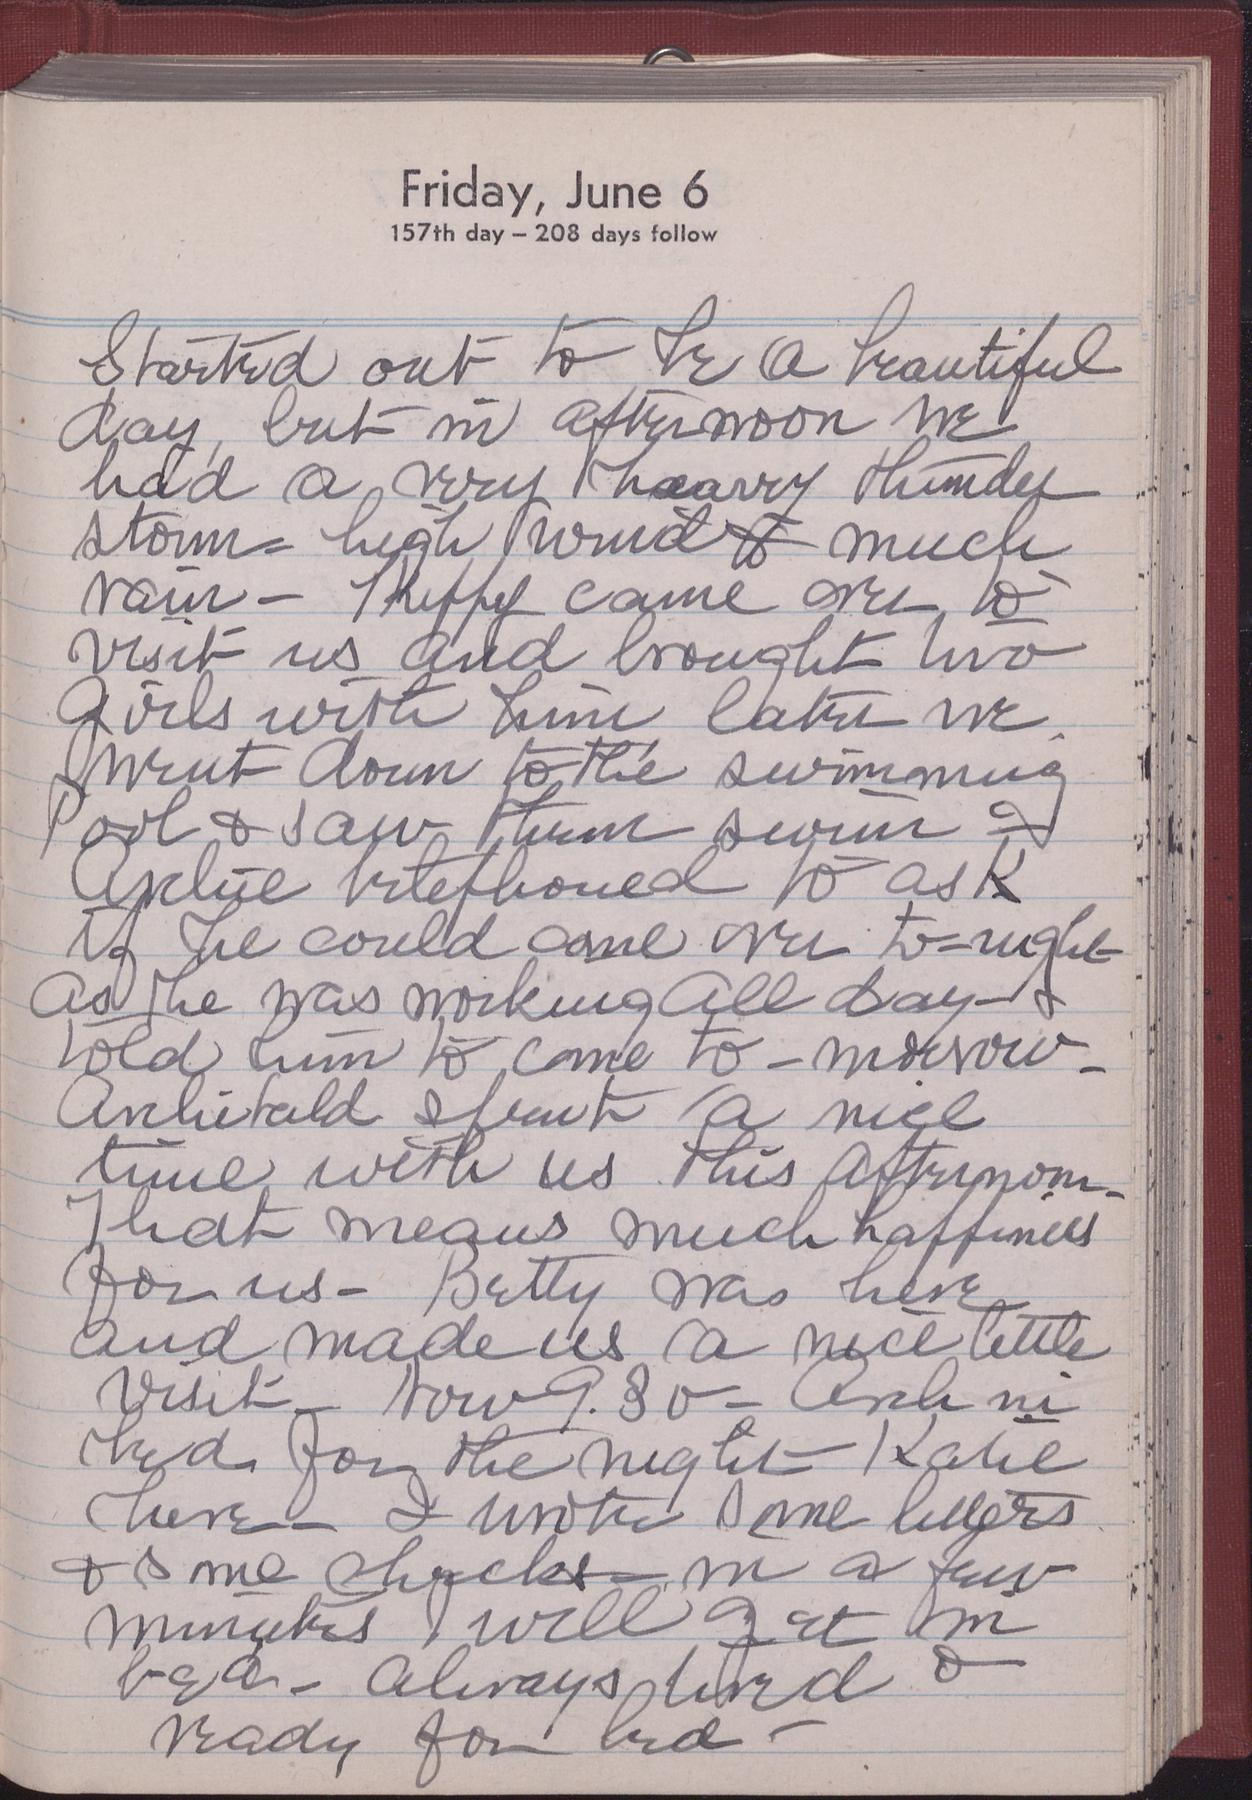 Friday, June 6
157th day – 208 days follow
Started out to be a beautiful
day, but in afternoon we
had a very heavy thunder
storm = high wind & much
rain – came over to
visit us and brought two
girls with him later we
went down to the swimming
Pool & saw them swim &
Archie telephoned to ask
if he could come over to-night
as he was working all day – &
told him to come to-morrow –
Archibald spent a nice
time with us this afternoon –
That means much happiness
for us – Betty was here
and made us a nice little
visit – Now 9.30 – Arch in
bed for the night – Katie
here – I wrote some letters
& some checks – in a few
minutes I will get in
bed – always tired &
ready for bed –